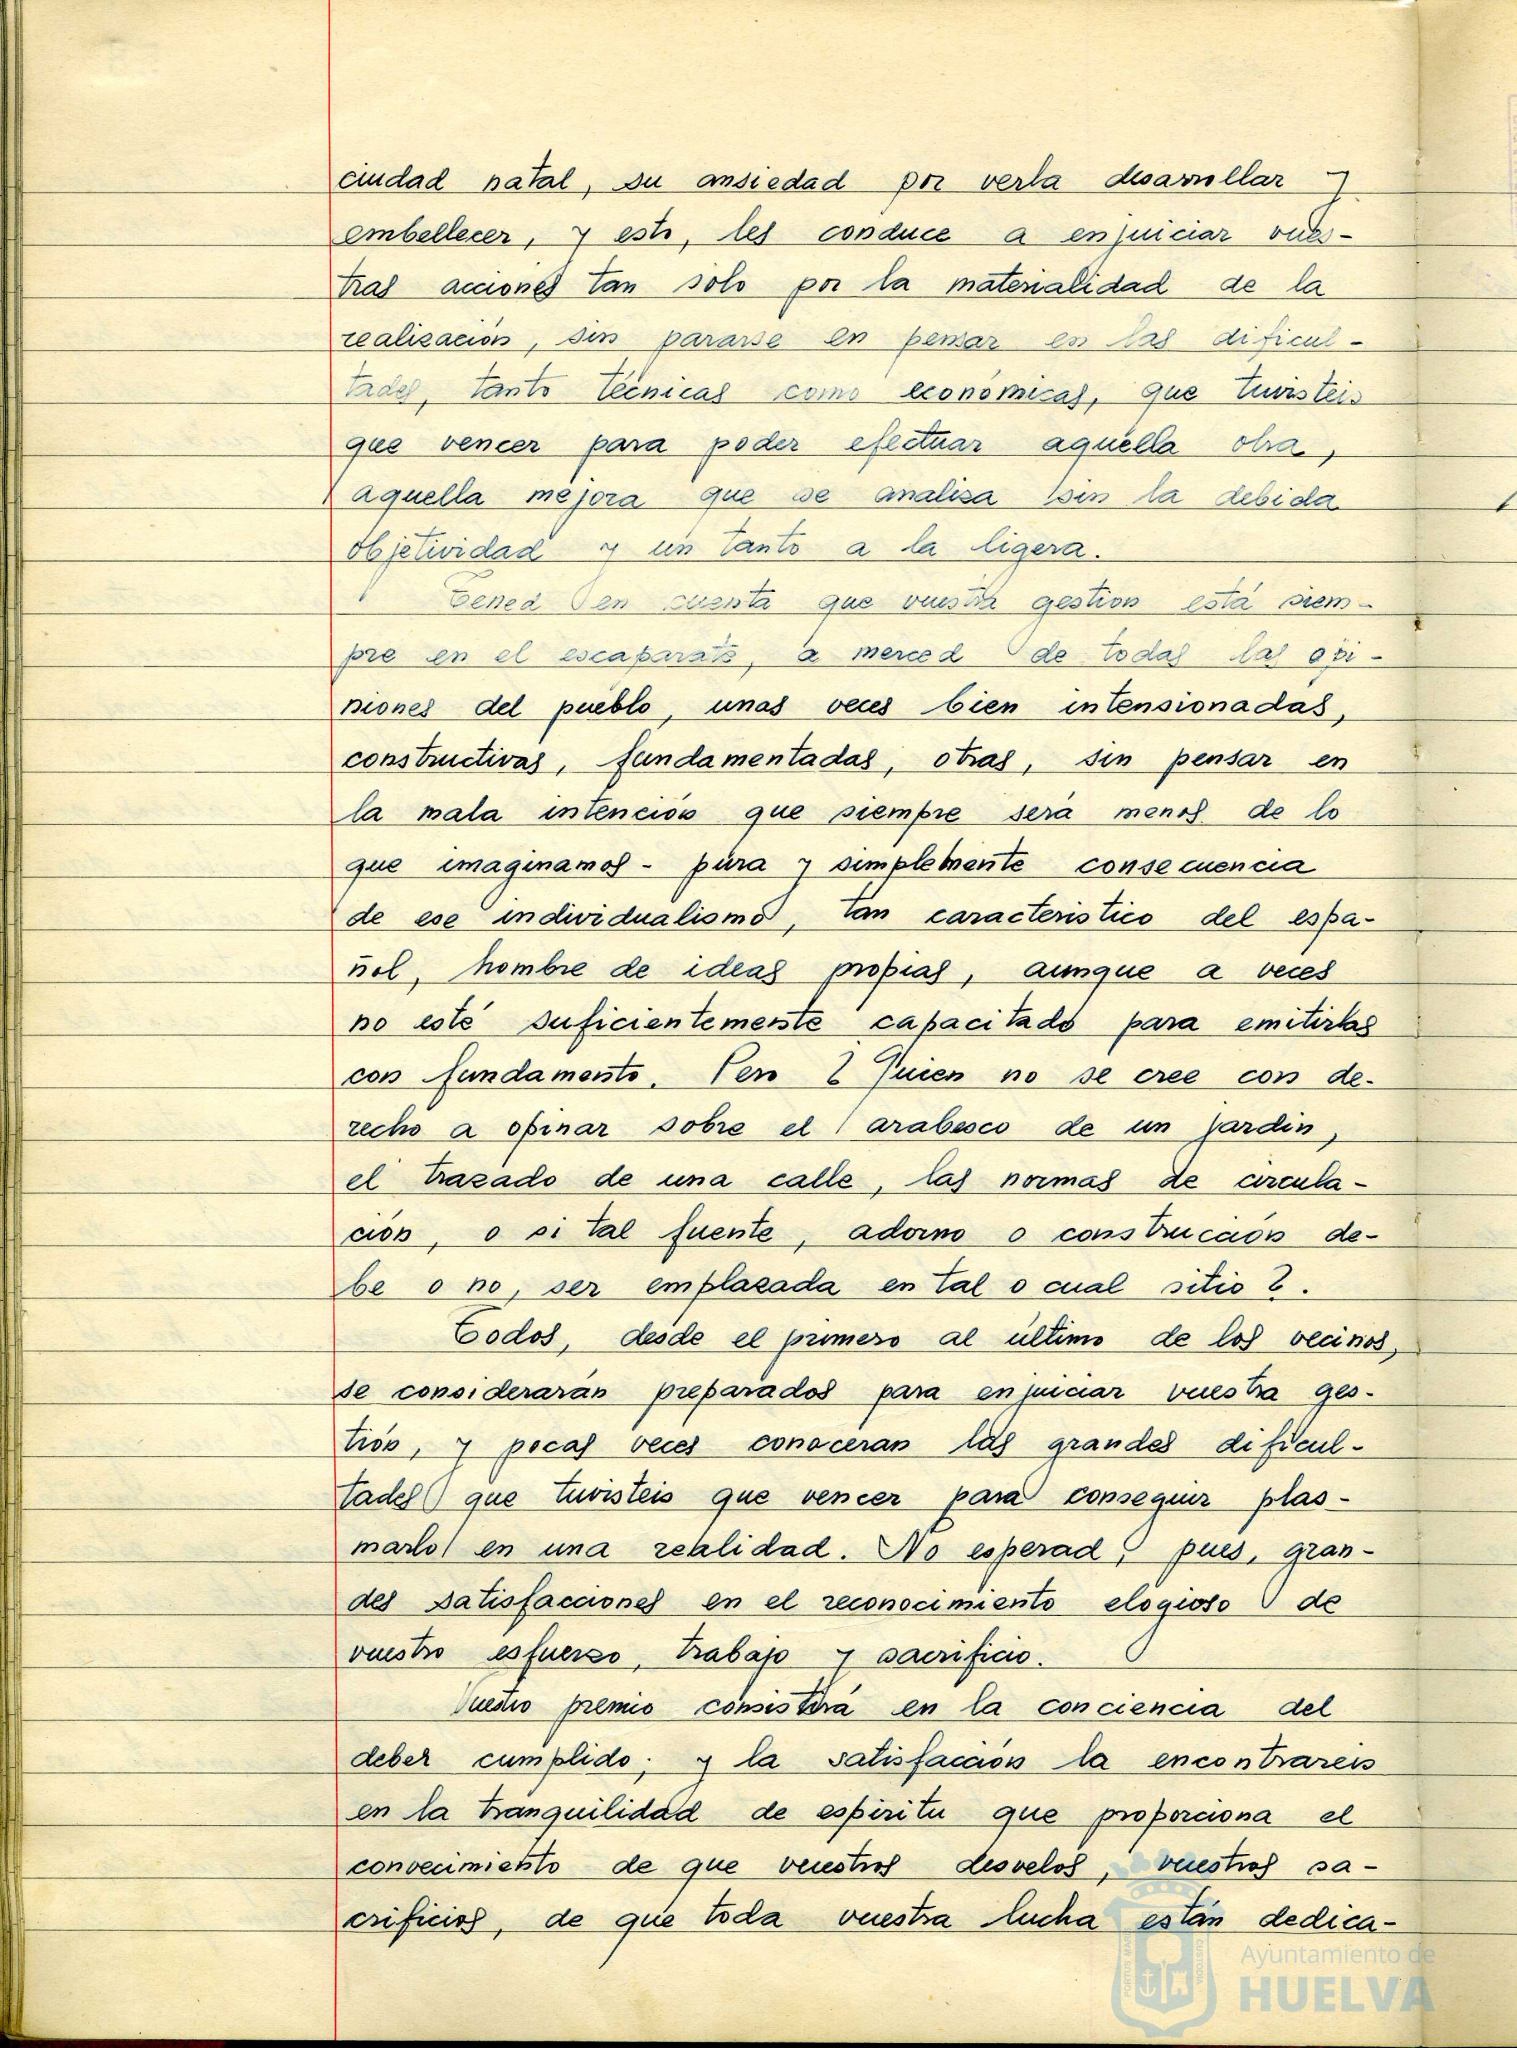 ciudad natal, su ansiedad por verla desarrollar y
embellecer, y esto, les conduce a enjuiciar vues-
tras acciones tan solo por la materialidad de la
realización, sin pararse en pensar en las dificul-
tades, tanto técnicas como económicas, que tuvisteis
que vencer para poder efectuar aquella obra,
aquella mejora que se analiza sin la debida
objetividad y un tanto a la ligera.
Tened en cuenta que vuestra gestion está siem-
pre en el escaparate, a merced de todas las opi-
niones del pueblo, unas veces bien intensionadas,
constructivas, fundamentadas, otras, sin pensar en
la mala intención que siempre será menos de lo
que imaginamos - pura y simplemente consecuencia
de ese individualismo, tan caracteristico del espa-
ñol, hombre de ideas propias, aunque a veces
no esté suficientemente capacitado para emitirlas
con fundamento. Pero ? Quien no se cree con de-
recho a opinar sobre el arabesco de un jardin,
el trazado de una calle, las normas de circula-
ción, o si tal fuente, adorno o construcción de-
be o no, ser emplazada en tal o cual sitio ?.
Todos, desde el primero al último de los vecinos,
se considerarán preparados para enjuiciar vuestra ges-
tión, y pocas veces conoceran las grandes dificul-
tades que tuvisteis que vencer para conseguir plas-
marlo en una realidad. No esperad, pues, gran-
des satisfacciones en el reconocimiento elogioso de
vuestro esfuerzo, trabajo y sacrificio.
Vuestro premio consistirá en la conciencia del
deber cumplido; y la satisfacción la encontrareis
en la tranquilidad de espiritu que proporciona el
convecimiento de que vuestros desvelos, vuestros sa-
crificios, de que toda vuestra lucha están dedica-
Ayuntamiento de
HUELVA